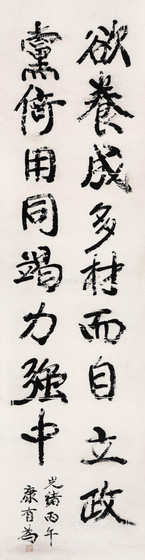 欲養成多材而自立政
黨衖用同竭力強中
光緒丙午
康有為